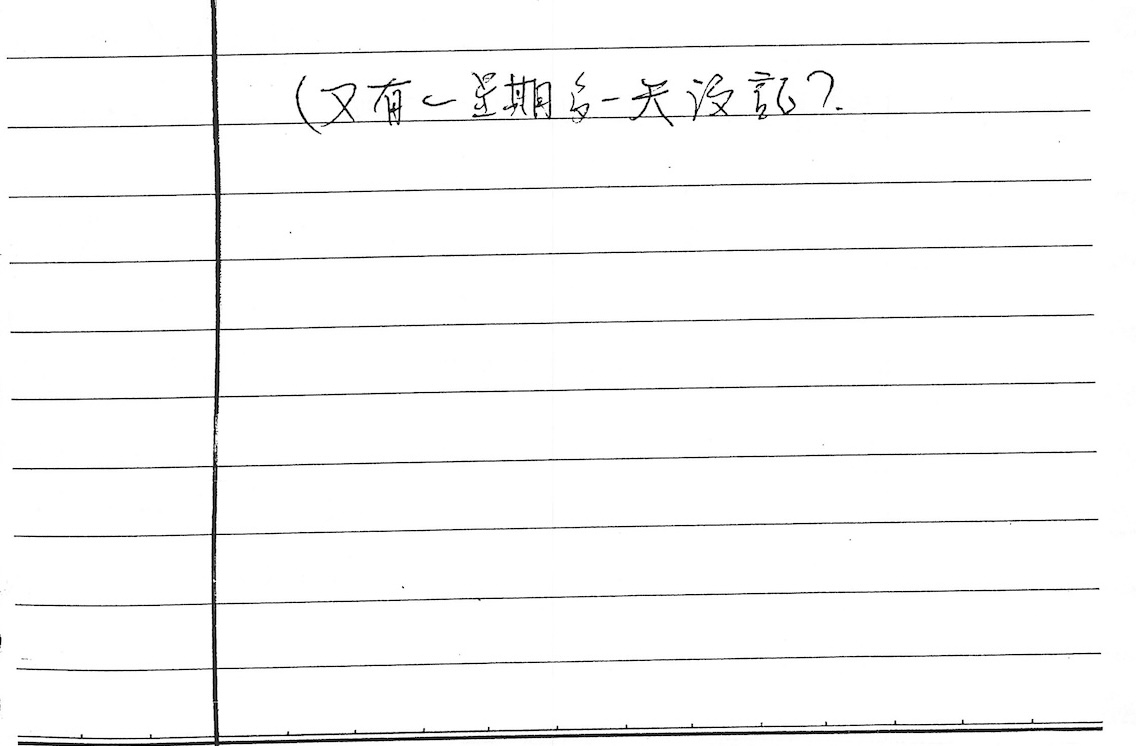 (又有一星期多一天没記?.